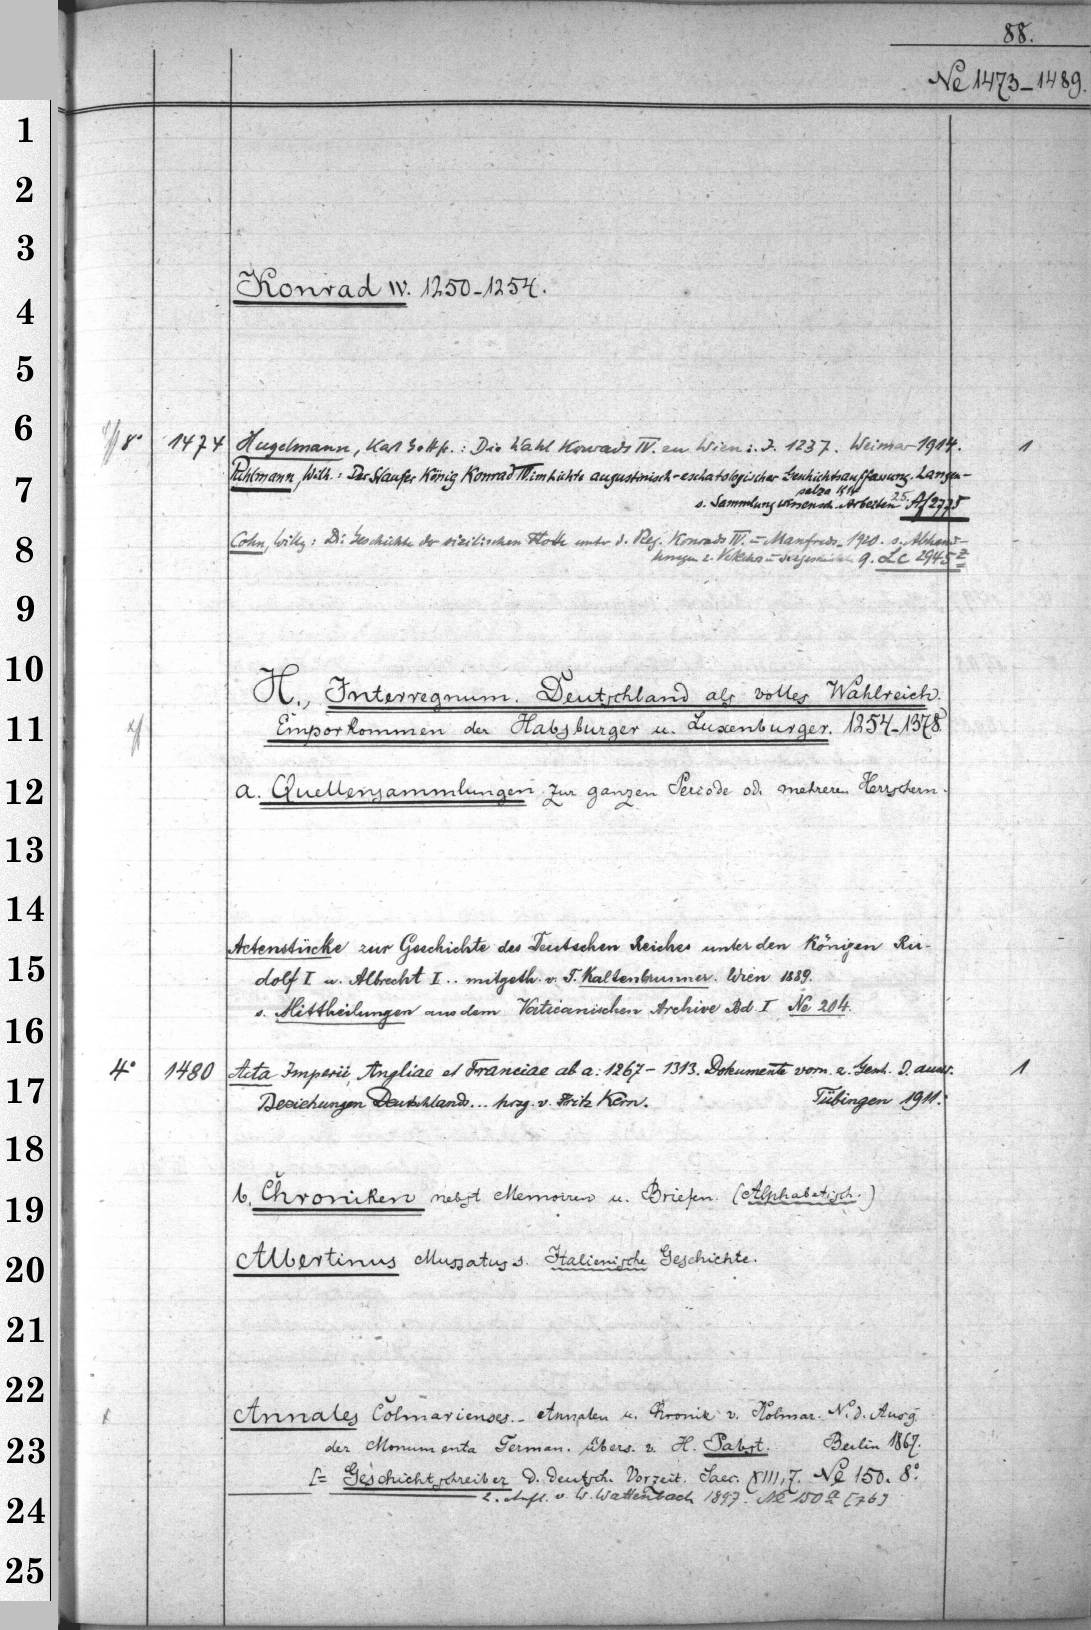 88.
Ne 1473-1489.
Konrad IV. 1250-1254.
8° 1474 Hugelmann, Karl Gottfr.: Die Wahl Konrads IV. zu Wien i. J. 1237. Weimar 1914. 1
Pühlmann, Wilh.: Der Staufer König Konrad IV im Lichte augustinisch-eschatologischer Geschichtsauffassung. Langen-
salza 1914
s. Sammlung wissensch. Arbeiten 25. Af 2775
Cohn, Willy: Die Geschichte der sizilischen Flotte unter d. Reg. Konrads IV. u. Manfreds. 1920. s. Abhand-
lungen z. Verkehrs- u. Seegeschichte 9. Lc 2945 z
H., Interregnum. Deutschland als volles Wahlreich.
Emporkommen der Habsburger u. Luxenburger. 1254-1378.
a. Quellensammlungen zur ganzen Periode od. mehreren Herrschern.
Actenstücke zur Geschichte des Deutschen Reiches unter den Königen Ru-
dolf I u. Albrecht I .. mitgeth. v. F. Kaltenbrunner. Wien 1889.
s. Mittheilungen aus dem Vaticanischen Archive Bd. I Ne 204.
4° 1480 Acta Imperii, Angliae et Franciae ab a. 1267-1313. Dokumente vorn. z. Gesch. d. ausw. 1
Beziehungen Deutschlands... hrsg. v. Fritz Kern. Tübingen 1911.
b. Chroniken nebst Memoiren u. Briefen. (Alphabetisch.)
Albertinus Mussatus s. Italienische Geschichte.
Annales Colmarienses. - Annalen u. Chronik v. Kolmar. N. d. Ausg.
der Monumenta German. übers. v. H. Pabst. Berlin 1867.
[= Geschichtschreiber d. deutsch. Vorzeit. Saec. XIII, 7. Ne 150. 8°.
2. Aufl. v. W. Wattenbach 1897. Ne 150 a [76]